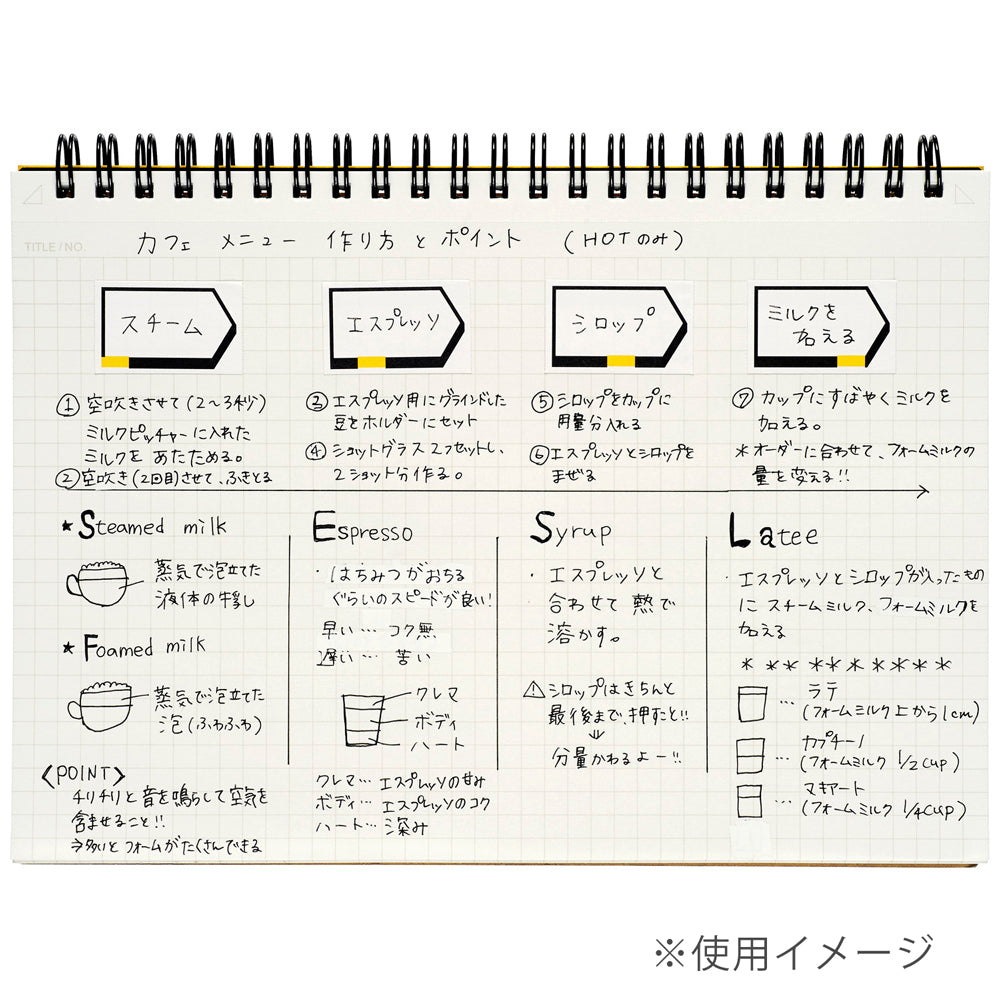 TITLE / NO.
カフェ メニュー 作り方 と ポイント (HOTのみ)
スチーム
① 空吹きさせて(2〜3秒)
ミルクピッチャーに入れた
ミルクを あたためる。
② 空吹き(2回目)させて、ふきとる
エスプレッソ
③ エスプレッソ用にグラインドした
豆をホルダーにセット
④ ショットグラス2つセットし、
2ショット分作る。
シロップ
⑤ シロップをカップに
用量分入れる
⑥ エスプレッソとシロップを
まぜる
ミルクを
加える
⑦ カップにすばやくミルクを
加える。
*オーダーに合わせて、フォームミルクの
量を変える!!
★ Steamed milk
蒸気で泡立てた
液体の牛乳
★ Foamed milk
蒸気で泡立てた
泡(ふわふわ)
〈POINT〉
チリチリと音を鳴らして空気を
含ませること!!
⇒多いとフォームがたくさんできる
Espresso
・はちみつがおちる
ぐらいのスピードが良い!
早い … コク無
遅い … 苦い
クレマ
ボディ
ハート
クレマ… エスプレッソの甘み
ボディ… エスプレッソのコク
ハート… 深み
Syrup
・エスプレッソと
合わせて 熱で
溶かす。
⚠シロップはきちんと
最後まで、押すと!!
⇓
分量かわるよー!!
Latee
・エスプレッソとシロップが入ったもの
に スチームミルク、フォームミルクを
加える
* * * * * * * * * *
… ラテ
(フォームミルク上から1cm)
… カプチーノ
(フォームミルク 1/2cup)
… マキアート
(フォームミルク 1/4cup)
※使用イメージ